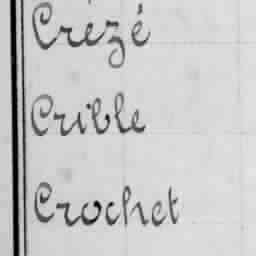 Crézé
Crible
Crochet